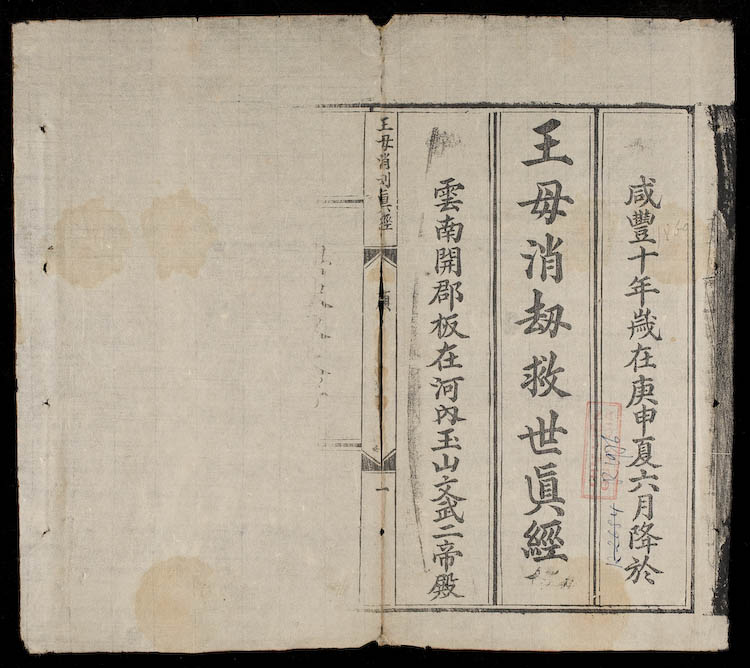 咸豐十年歲在庚申夏六月降於
王母消劫救世眞經
雲南開郡板在河內玉山文武二帝殿
王母消刼眞經
一